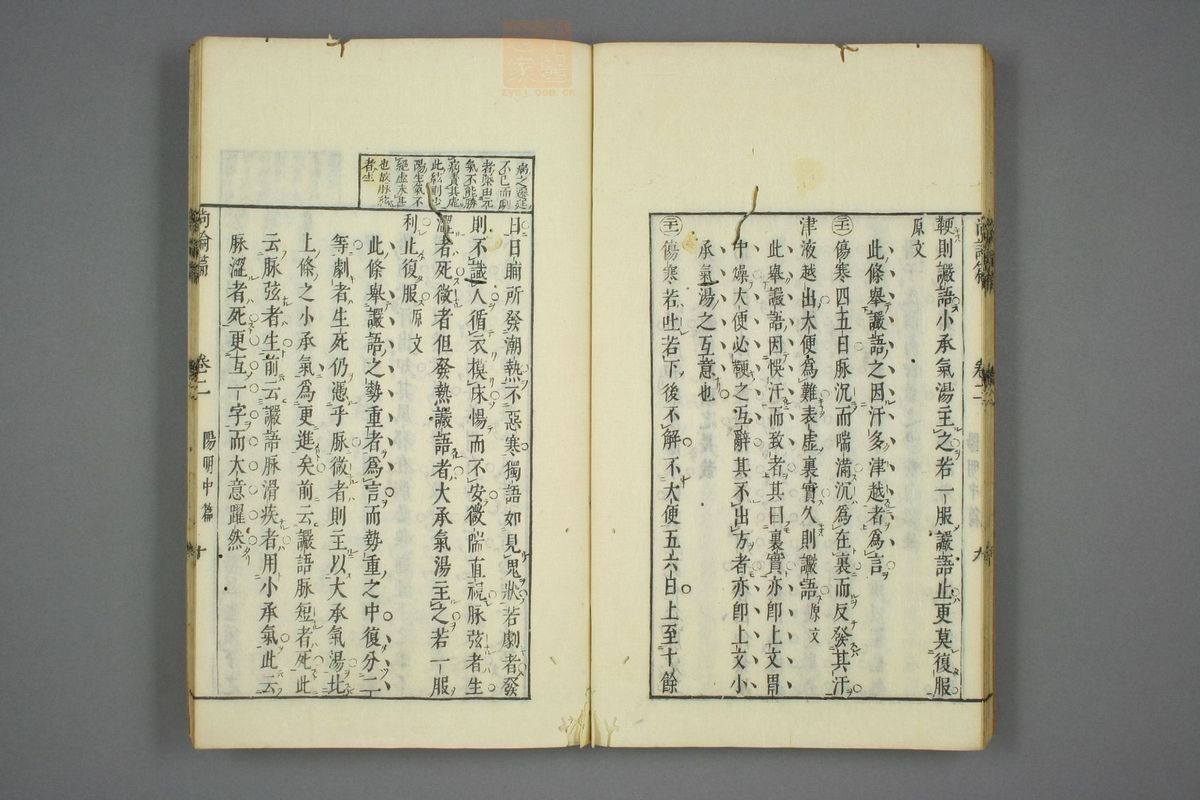 鞕則讝語小承氣湯主之若一服讝語止更莫復服
原文
此條舉讝語之因汗多津越者為言
傷寒四五日脉沉而喘滿沉為在裏而反發其汗
津液越出大便為難表虛裏實久則讝語原文
此舉讝語因悞汗而致者其曰裏實亦即上文胃
中燥大便必鞕之互辭其不出方者亦即上文小
承氣湯之互意也
傷寒若吐若下後不解不大便五六日上至十餘
卷二
九
病之遷延
不已而劇
者梁由元
氣不能勝
病
此
陽生氣不
絕虛未甚
也故脉弦
者生
日日晡所發潮熱不惡寒獨語如見鬼狀若劇者發
則不識人循衣摸床惕而不安微喘直視脉弦者生
濇者死微者但發熱讝語者大承氣湯主之若一服
利止復服原文
此條舉讝語之勢重者為言而勢重之中復分二
等劇者生死仍憑乎脉微者則主以大承氣湯比
上條之小承氣為更進矣前云讝語脉短者死此
云脉弦者生前云讝語脉滑疾者用小承氣此云
脉濇者死更互一字而大意躍然
尚論篇
卷二
陽明中篇
十